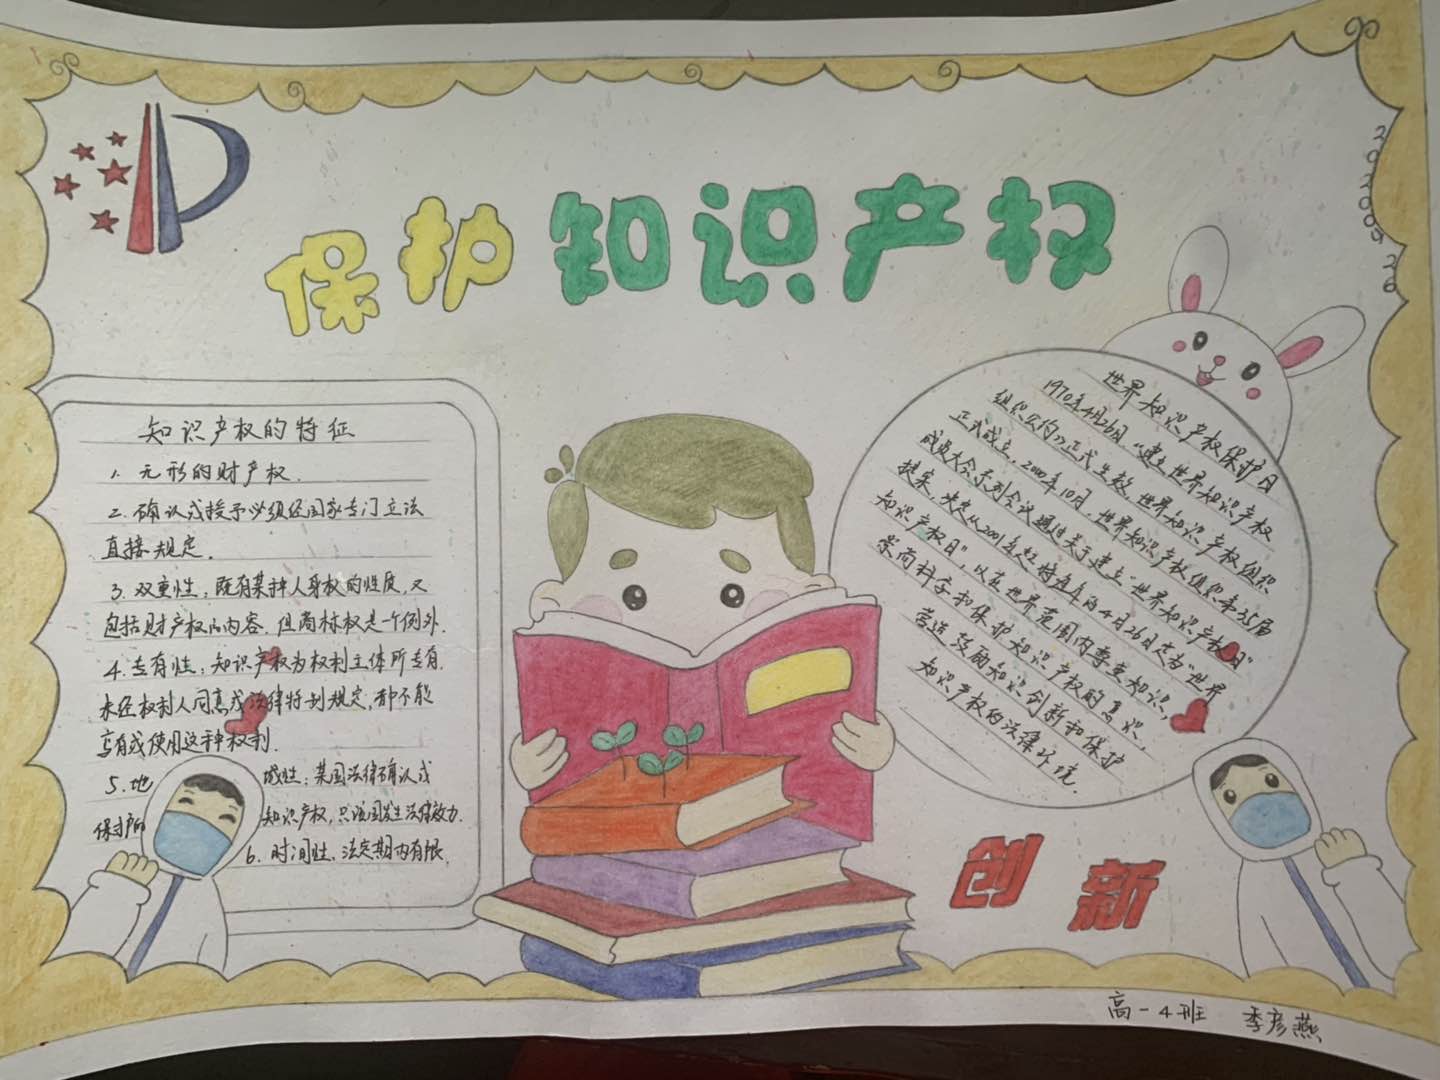 保护知识产权
20200926
知识产权的特征
1. 无形的财产权.
2. 确认或授予必须经国家专门立法
直接规定.
3. 双重性：既有某种人身权的性质，又
包括财产权的内容. 但商标权是一个例外.
4. 专有性：知识产权为权利主体所专有.
未经权利人同意或法律特别规定，都不能
享有或使用这种权利.
5. 地域性：某国法律确认或
保护的知识产权，只该国发生法律效力.
6. 时间性，法定期内有限.
世界知识产权保护日
1970年4月26日，“建立世界知识产权
组织公约》正式生效，世界知识产权组织
正式成立，2000年10月，世界知识产权组织第35届
成员大会系列会议通过关于建立“世界知识产权日”
提案，决定从2001年起将每年的4月26日定为“世界
知识产权日”，以在世界范围内尊重知识，
崇尚科学和保护知识产权的意识，
营造鼓励知识创新和保护
知识产权的法律环境.
创新
高一4班 季彦燕